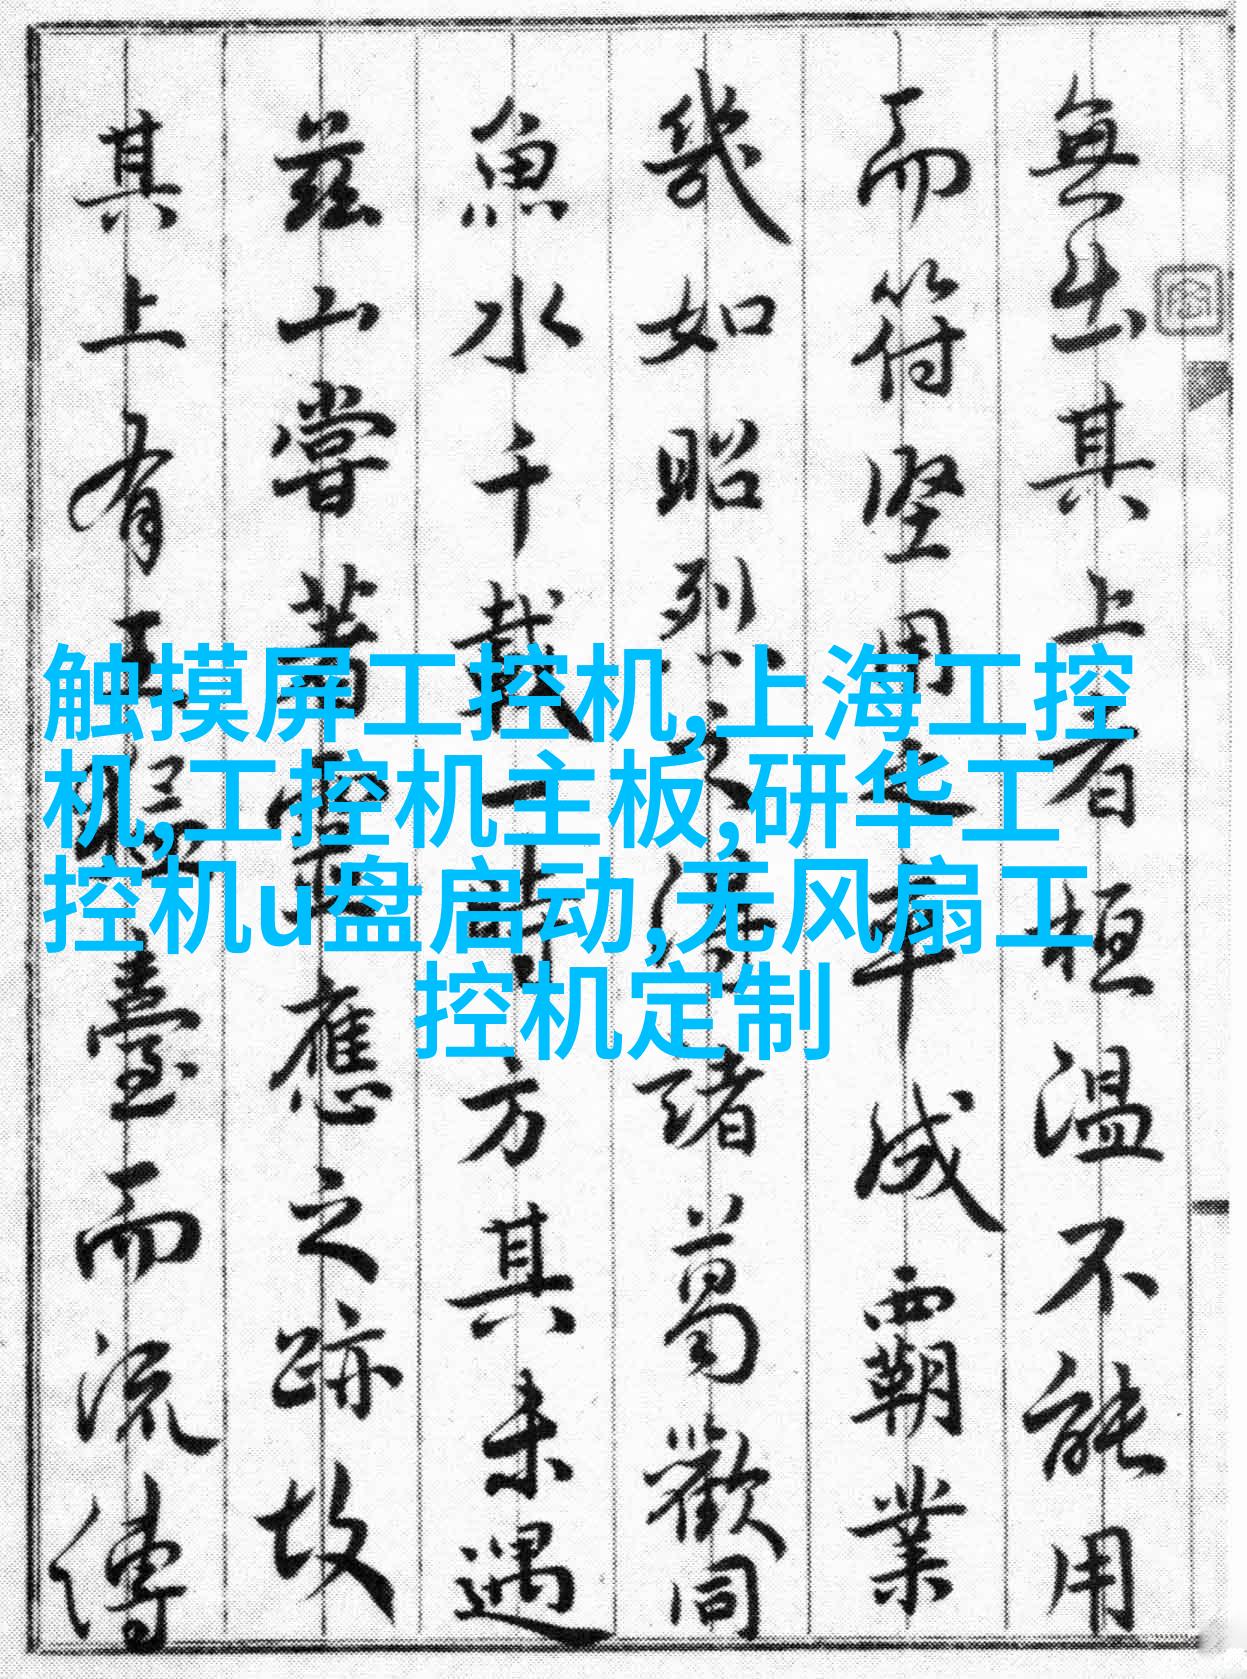 無出其上者桓溫不能用
而符堅用之卒成霸業
幾如昭烈之諸葛歡同
魚水千載一時方其未遇
茲山嘗著靈應之跡故
其上有王臺而流傳
触摸屏工控机,上海工控
机,工控机主板,研华工
控机u盘启动,无风扇工
控机定制